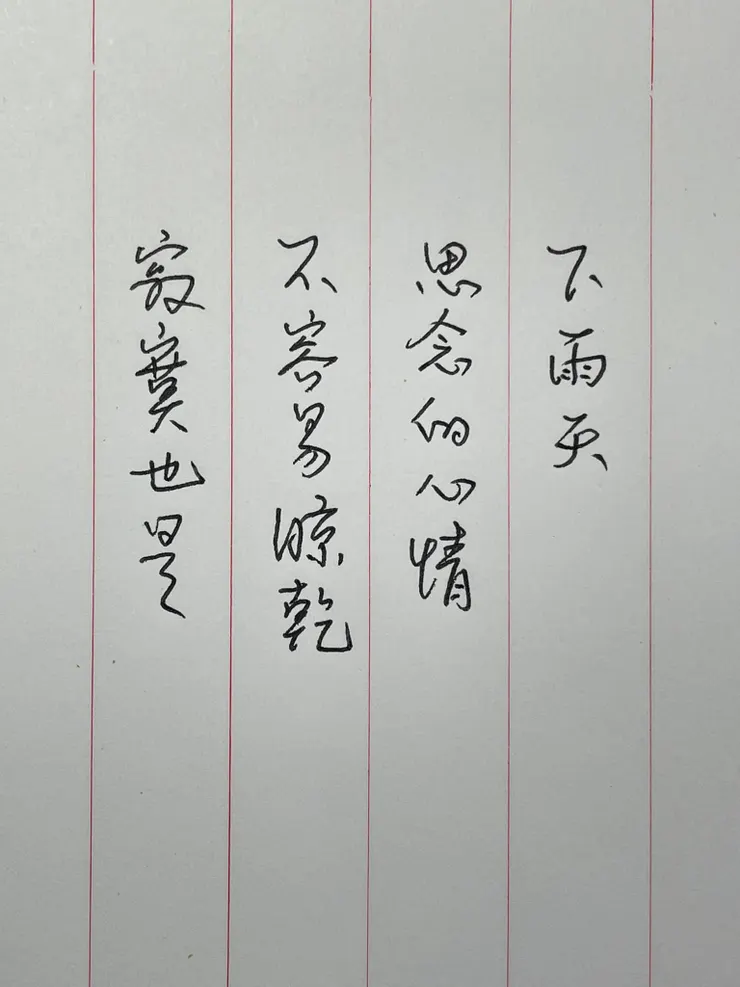 下雨天
思念的心情
不容易晾乾
寂寞也是